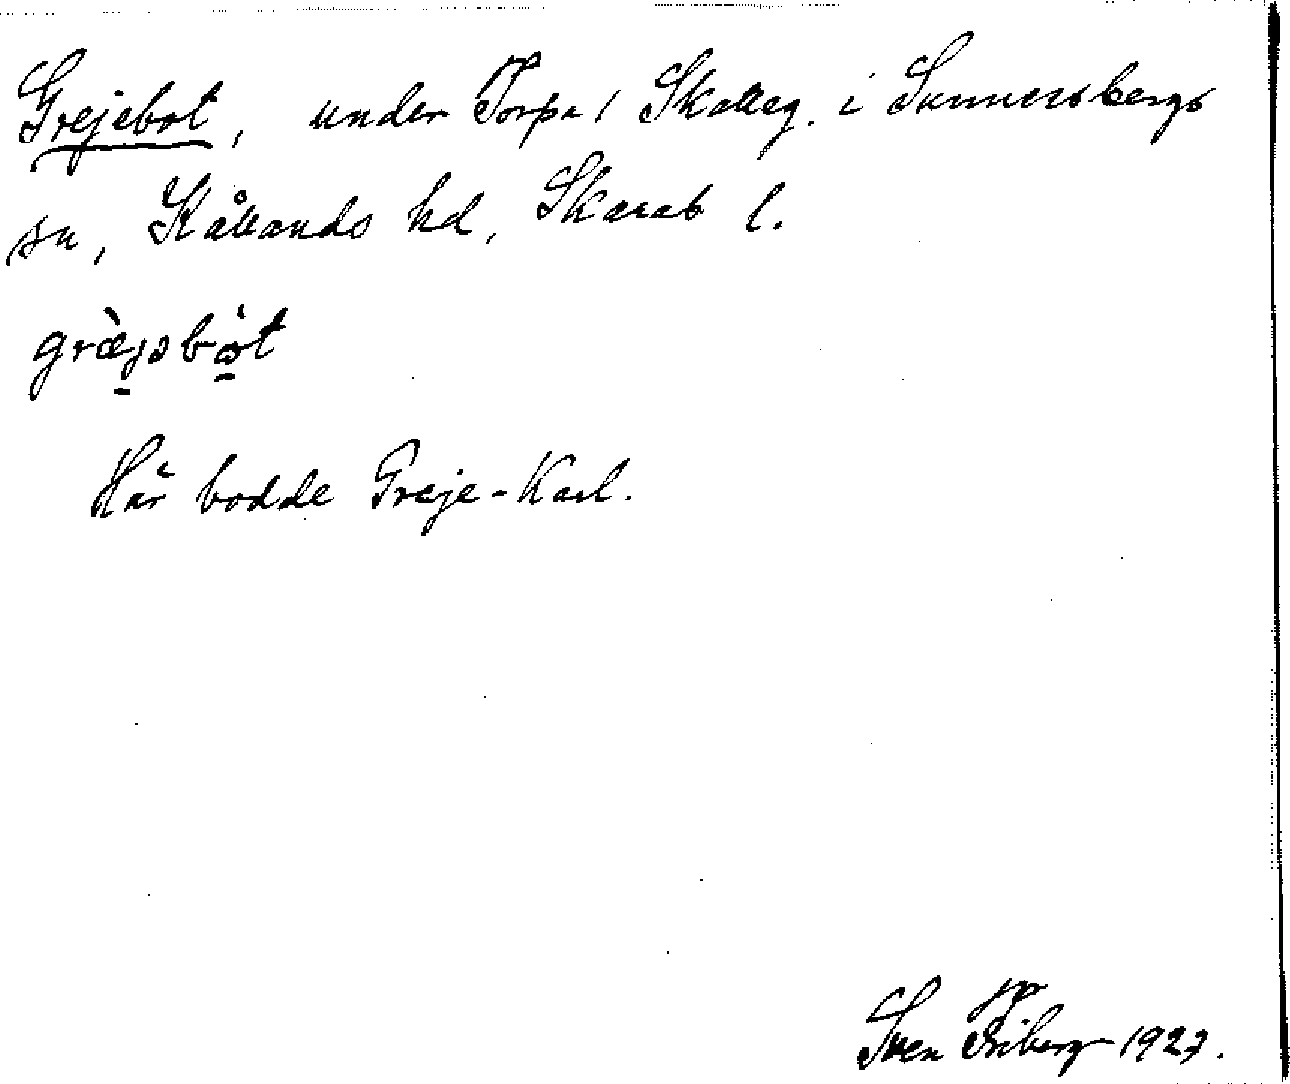 Grejebot, under Torpa / Skalleg. i Sunnersbergs
sn, Kållands hd, Skarab l.
græ̀jəbòt
Här bodde Greje-Karl.
Sven Friberg 1927.